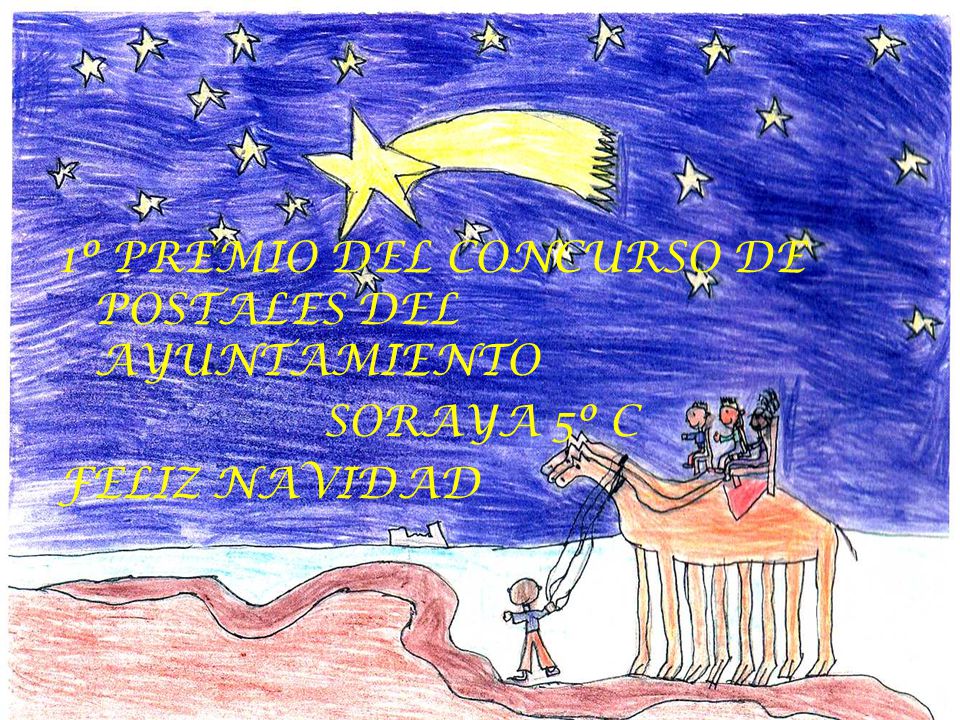 1º PREMIO DEL CONCURSO DE
POSTALES DEL
AYUNTAMIENTO
SORAYA 5º C
FELIZ NAVIDAD